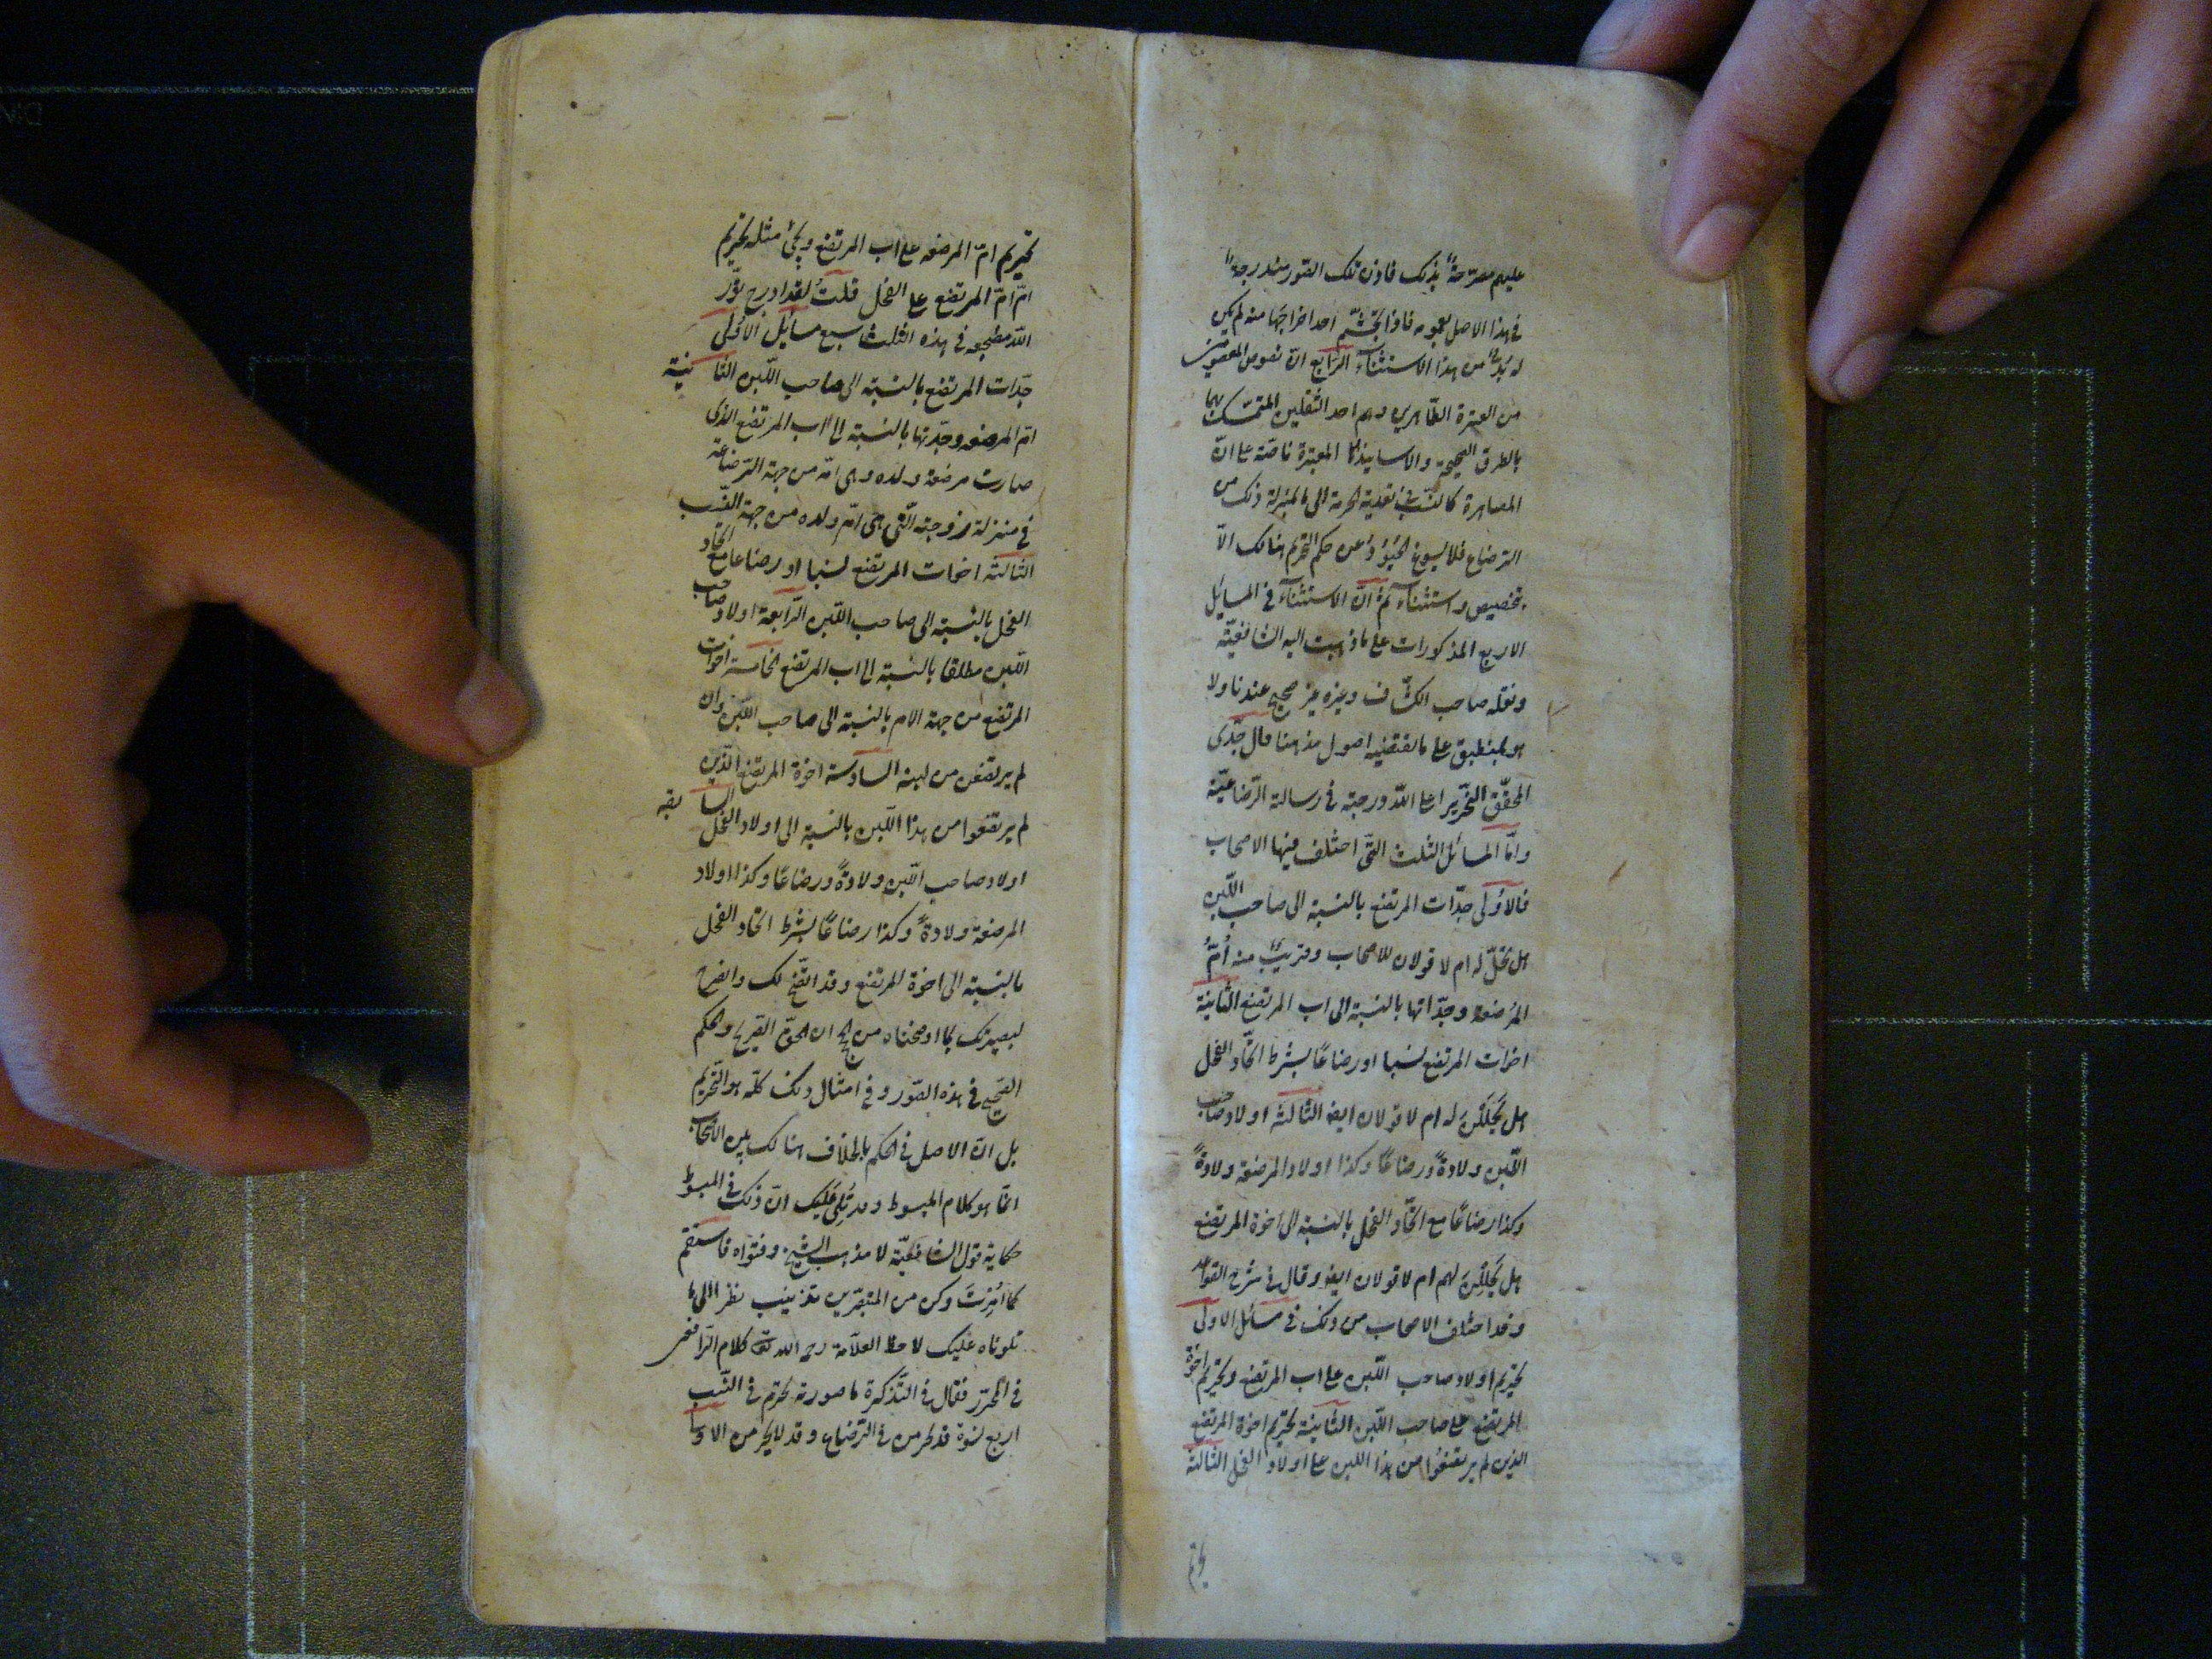 عليهم مصرّحة بذلك فاذن تلك الصّور مندرجة
فى هذا الاصل بعمومه فاذا تجشّم احد اخراجها منه لم يكن
له بُدّ من هذا الاستثناء الرّابع انّ نصوص المعصومين
من العترة الطّاهرين وهم احد الثقلين المتمسّك بهما
بالطرق الصحيحة والاسانيد المعتبرة ناصّة على انّ
المصاهرة كالنّسب فى تعدية الحرمة الى ما بمنزلة ذلك من
الرّضاع فلا يسوغ الخروج عن حكم التحريم هنالك الاّ
بتخصيص واستثناء ثمّ انّ الاستثناء فى المسايل
الاربع المذكورات على ما ذهبت اليه الشافعيّة
ونقله صاحب الكشّاف وغيره غير صحيح عندنا ولا
هو بمنطبق على ما تقتضيه اصول مذهبنا قال جدّى
المحقّق النّحرير اعلى اللّه درجته فى رسالته الرّضاعيّة
وامّا المسائل الثلث التّى اختلف فيها الاصحاب
فالاولى جدّات المرتضع بالنسبة الى صاحب اللّبن
هل تحلّ له ام لا قولان للاصحاب وقريب منه أمّ
المرضعة وجدّاتها بالنسبة الى اب المرتضع الثانية
اخوات المرتضع نسبا او رضاعًا بشرط اتّحاد الفحل
هل يحللن له ام لا قولان ايضا الثّالثة اولاد صاحب
اللّبن ولادةً ورضاعًا وكذا اولاد المرضعة ولادةً
وكذا رضاعًا مع اتّحاد الفحل بالنسبة الى اخوة المرتضع
هل يحللن لهم ام لا قولان ايضا وقال فى شرح القواعد
وقد اختلف الاصحاب من ذلك فى مسائل الاولى
تحريم اولاد صاحب اللّبن على اب المرتضع وتحريم اخوة
المرتضع على صاحب اللّبن الثّانية تحريم اخوة المرتضع
الذين لم يرتضعوا من هذا اللبن على اولاد الفحل الثالثة
تحريم
تحريم امّ المرضعه على اب المرتضع ويجئ مثله تحريم
امّ امّ المرتضع على الفحل قلتُ لقد ادرج نوّر
اللّه مضجعه فى هذه الثلث سبع مسائل الاولى
جدّات المرتضع بالنسبة الى صاحب اللّبن الثانية
امّ المرضعه وجدّتها بالنسبة الى اب المرتضع الذى
صارت مرضعة ولده وهى امّه من جهة الرّضاعة
فى منزلة زوجته الّتى هى امّ ولده من جهة النّسب
الثالثه اخوات المرتضع نسبا او رضاعا مع اتّحاد
الفحل بالنسبة الى صاحب اللّبن الرّابعة اولاد صاحب
اللّبن مطلقا بالنسبة الى اب المرتضع الخامسة اخوات
المرتضع من جهة الام بالنسبة الى صاحب اللّبن وان
لم يرتضعن من لبنه السادسة اخوة المرتضع الّذين
لم يرتضعوا من هذا اللّبن بالنسبة الى اولاد الفحل السابعة
اولاد صاحب اللّبن ولادةً ورضاعًا وكذا اولاد
المرضعة ولادةً وكذا رضاعًا بشرط اتّحاد الفحل
بالنسبة الى اخوة المرتضع وقد اتّضح لك واتضح
لبصيرتك بما اوضحناه من انّ الحقّ القريح والحكم
الصّحيح فى هذه الصّور وفى امثال ذلك كلّه هو التّحريم
بل انّ الاصل فى الحكم بالخلاف هنالك بين الاصحاب
انّما هو كلام المبسوط وقد تُلِىَ عليك انّ ذلك فى المبسوط
حكاية قول الشافعيّة لا مذهب الشيخ وفتواه فاستقم
كما اُمِرتَ وكن من المتبصّرين تذنيب نظرا الى ما
تلوناه عليك لاحظ العلاّمة رحمه اللّه كلام الرّافعى
فى المحرّر فقال فى التّذكرة ما صورته تحرم فى النّسب
اربع نسوة قد يحرمن فى الرّضاع وقد لا يحرمن الاولى